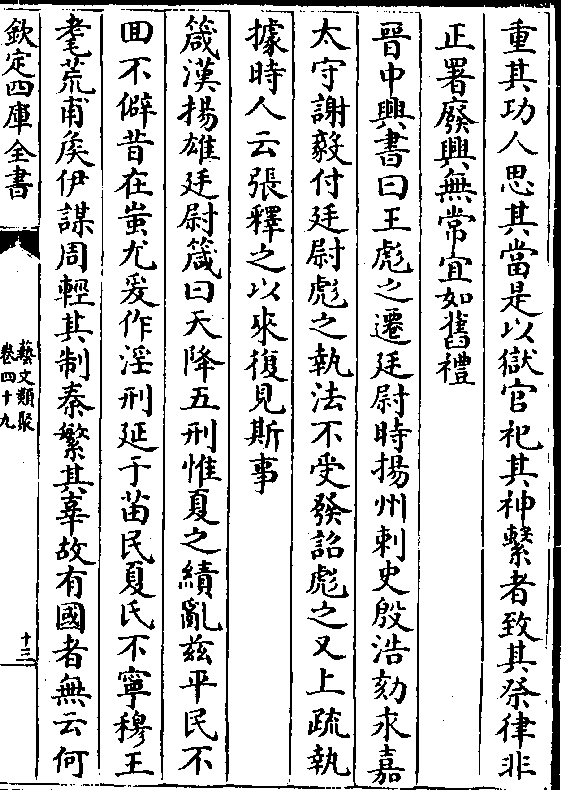 重其功人思其當是以獄官祀其神繫者致其祭律非
正署廢興無常宜如舊禮
晉中興書曰王彪之遷廷尉時揚州刺史殷浩劾求嘉
太守謝毅付廷尉彪之執法不受發詔彪之又上疏執
據時人云張釋之以來復見斯事
箴漢揚雄廷尉箴曰天降五刑惟夏之績亂兹平民不
回不僻昔在蚩尤爰作淫刑延于苗民夏氏不寧穆王
耄荒甫矦伊謀周輕其制秦繁其辜故有國者無云何
欽定四庫全書
藝文類聚
卷四十九
十三